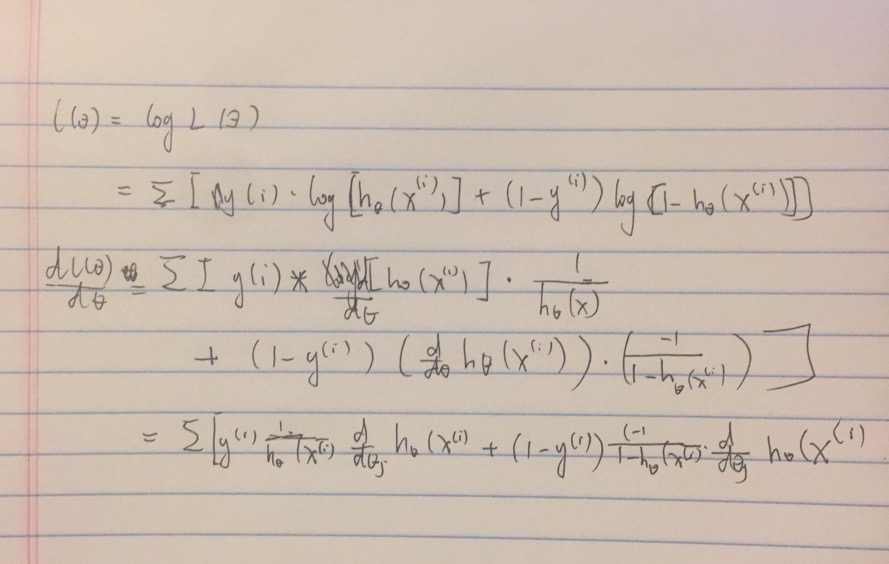 l(θ) = log L(θ)
= Σ [ y(i) · log [hθ(x^(i))] + (1-y^(i)) log [1- hθ(x^(i))]]
dl(θ)/dθ = Σ [ y(i) * d/dθ [hθ(x^(i))] · 1/hθ(x)
+ (1-y^(i)) (d/dθ hθ(x^(i))) · (-1/(1-hθ(x^(i))) ]
= Σ [y^(i) 1/hθ(x^(i)) d/dθj hθ(x^(i) + (1-y^(i)) (-1/1-hθ(x^(i)) · d/dθj hθ(x^(i)